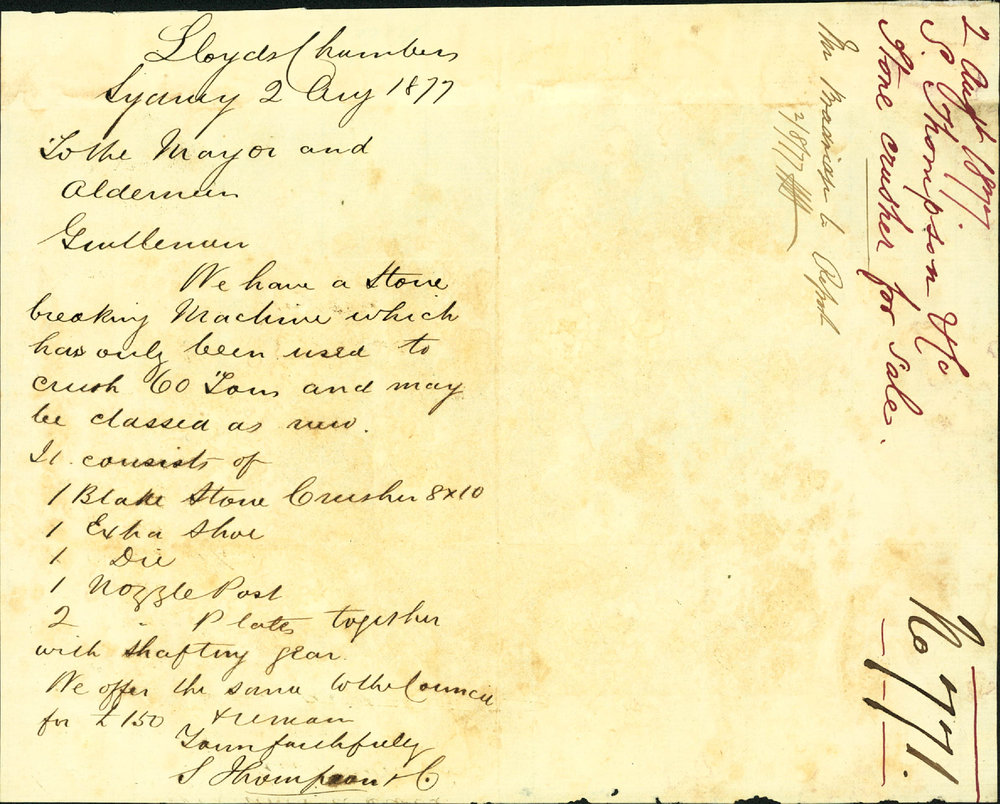 Lloyds Chambers
Sydney 2 Aug 1877
To the Mayor and
Aldermen
Gentlemen
We have a Stone
breaking Machine which
has only been used to
crush 60 Tons and may
be classed as new.
It consists of
1 Blake Stone Crusher 8x10
1 Extra Shoe
1 Die
1 Nozzle Post
2 " Plates together
with shafting gear.
We offer the same to the Council
for £150 & remain
Yours faithfully
S Thompson & Co
2 Augt 1877.
S. Thompson & Co
Stone crusher for sale.
Mr to Report
2/8/77
No 771.